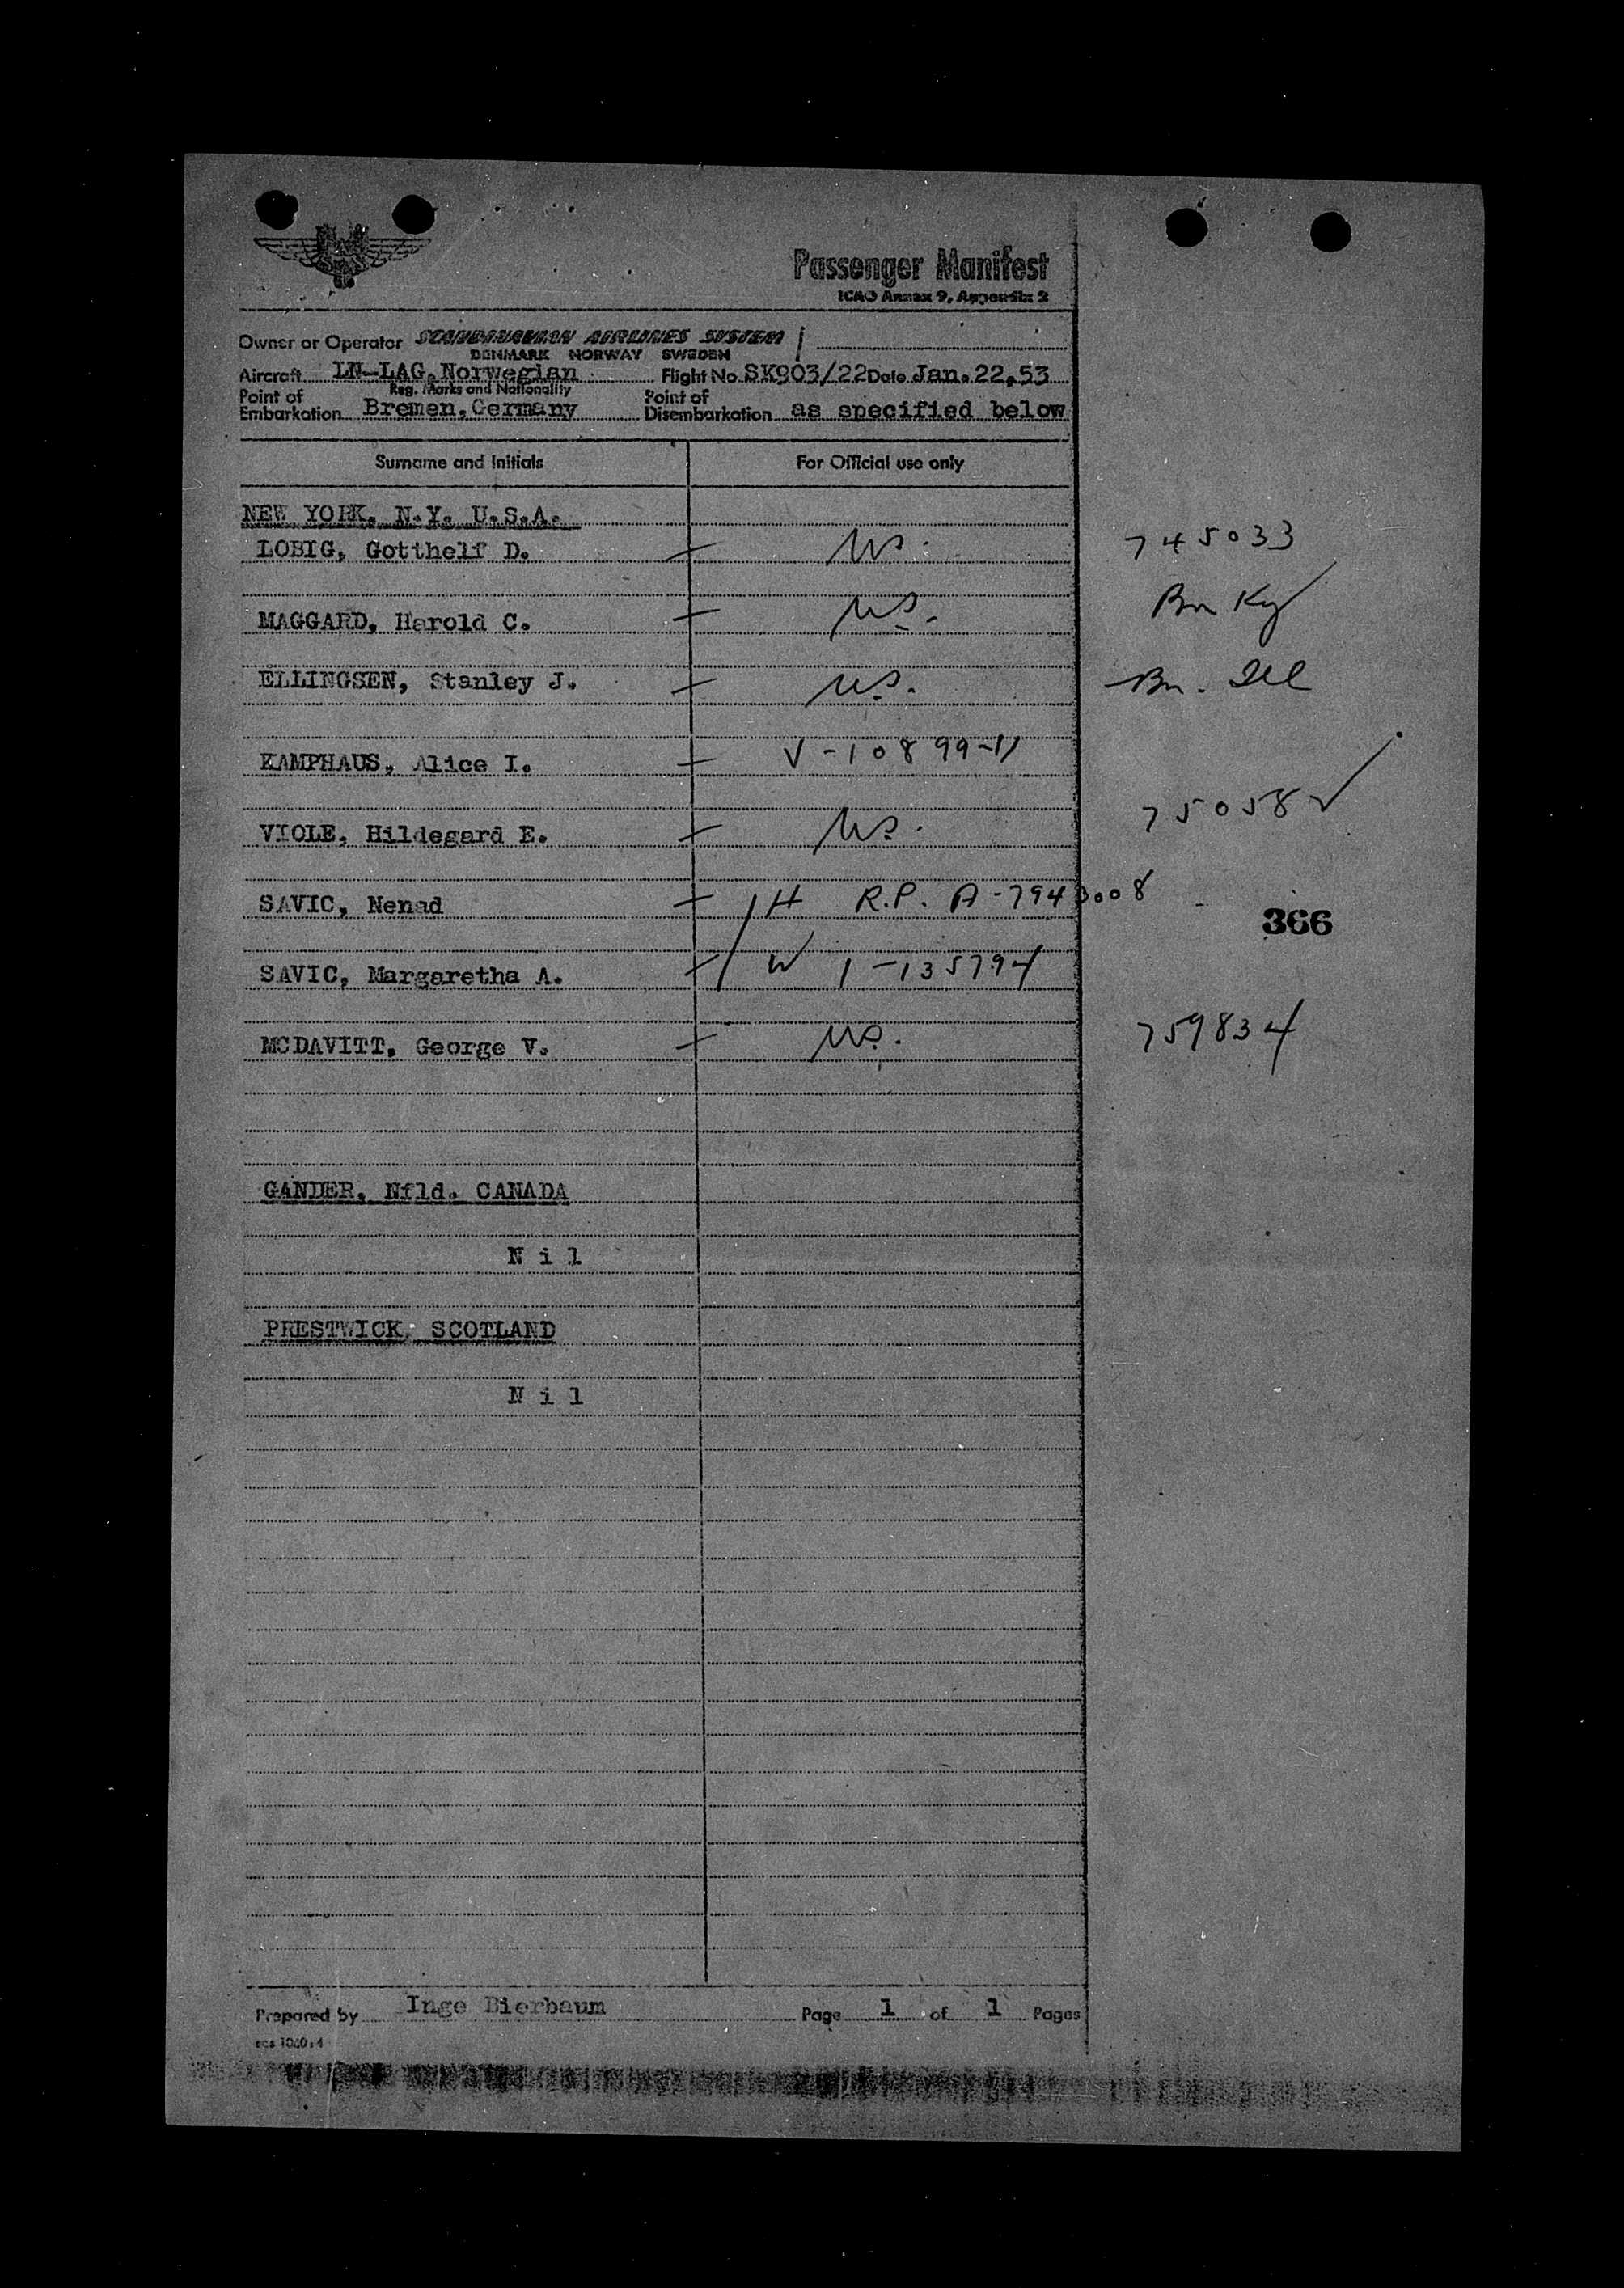 SAS
Passenger Manifest
ICAO Annex 9, Appendix 2
Owner or Operator SCANDINAVIAN AIRLINES SYSTEM
DENMARK NORWAY SWEDEN
Aircraft LN-LAG, Norwegian Flight No SK903/22 Date Jan. 22, 53
Reg. Marks and Nationality
Point of Embarkation Bremen, Germany Point of Disembarkation as specified below
Surname and Initials For Official use only
NEW YORK, N.Y. U.S.A.
LOBIG, Gotthelf D. US. 745033
MAGGARD, Harold C. US. Bn Ky
ELLINGSEN, Stanley J. US. Bn. Ill
KAMPHAUS, Alice I. V-10899-11
VIOLE, Hildegard E. US. 75058
SAVIC, Nenad H R.P. A-7943008
366
SAVIC, Margaretha A. W 1-135794
MCDAVITT, George V. US. 759834
GANDER, Nfld. CANADA
N i l
PRESTWICK, SCOTLAND
N i l
Prepared by Inge Bierbaum Page 1 of 1 Pages